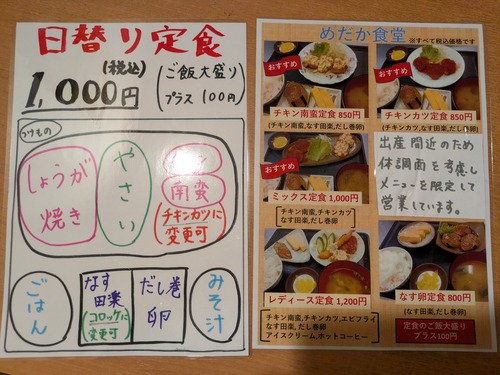 日替り定食
(税込)
1,000円
(ご飯大盛り
プラス 100円)
つけもの
しょうが
焼き
やさい
チキン
南蛮
(チキンカツに
変更可)
ごはん
なす
田楽
(コロッケに
変更可)
だし巻
卵
みそ汁
めだか食堂
※すべて税込価格です
おすすめ
チキン南蛮定食 850円
(チキン南蛮,なす田楽,だし巻卵)
おすすめ
チキンカツ定食 850円
(チキンカツ,なす田楽,だし巻卵)
おすすめ
ミックス定食 1,000円
チキン南蛮,チキンカツ
なす田楽,だし巻卵
出産間近のため
体調面を考慮し
メニューを限定して
営業しています。
レディース定食 1,200円
チキン南蛮,チキンカツ,エビフライ
なす田楽,だし巻卵
アイスクリーム,ホットコーヒー
なす卵定食 800円
(なす田楽,だし巻卵)
定食のご飯大盛り
プラス100円